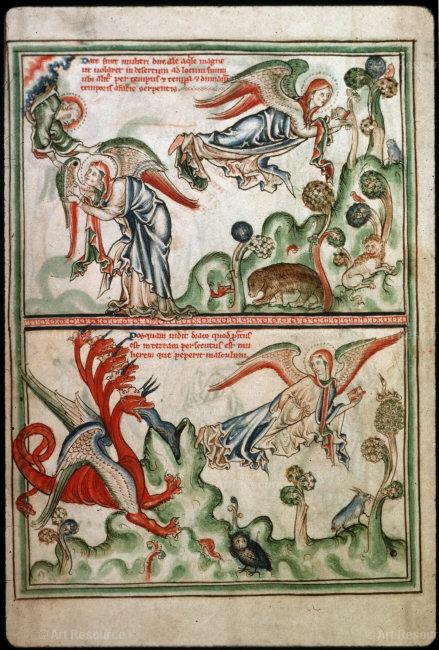 Date sunt mulieri due ale aqle magne
ut uolaret in desertum ad locum suum
ubi alit per tempus & tempa & dimidiu
temporis a facie serpentis
Postquam uidit draco quod
est in terram persecutus est mu
lierem que peperit masculum
© Art Resource
© Art Resource